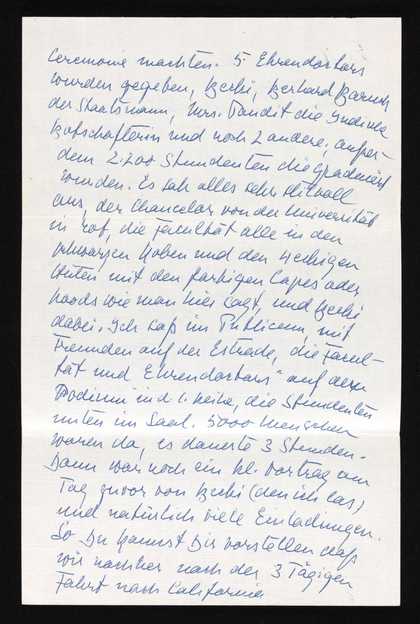 Ceremonie machten. 5 Ehrendoctors
wurden gegeben, Becki, Berhard Baruch
der Staatsmann, Mrs. Pandit die Indische
Botschafterin und noch 2 andere, ausser-
dem 2.200 Stundenten die graduiert
wurden. Es sah alles sehr stilvoll
aus, der Chancelor von der Universität
in rot, die Facultät alle in den
schwarzen Roben und den 4eckigen
Hüten mit den farbigen Capes oder
hoods wie man hier sagt, und Becki
dabei. Ich sass im Publicum mit
Freunden auf der Estrade, die Facul-
tät und Ehrendoctors auf dem
Podium in d. 1. Reihe, die Stundenten
unten im Saal. 5000 Menschen
waren da, es dauerte 3 Stunden.
Dann war noch ein kl. Vortrag am
Tag zuvor von Becki (den ich las)
und natürlich viele Einladungen.
So Du kannst Dir vorstellen dass
wir nachher nach der 3 Tägigen
Fahrt nach Californie